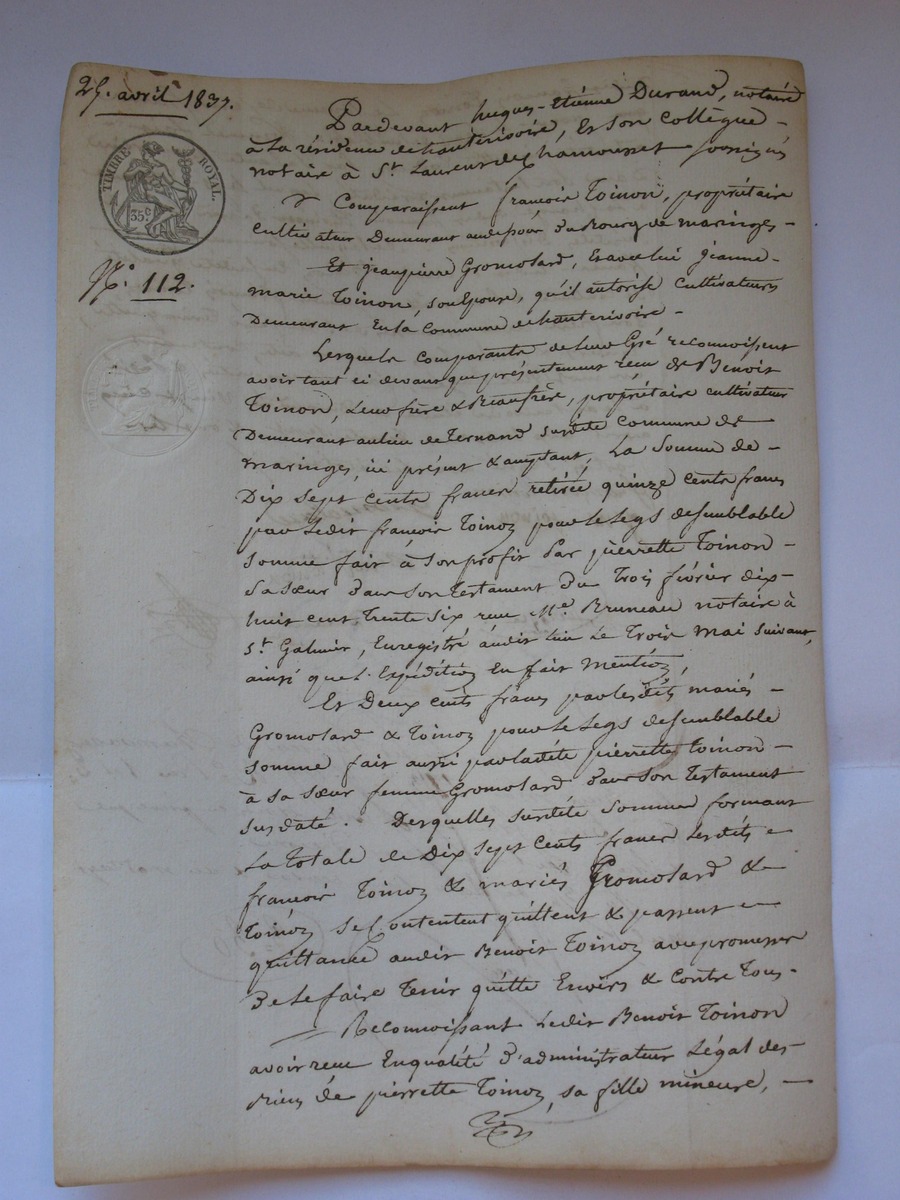 25. avril 1837.
TIMBRE ROYAL.
35.c
N.° 112.
Pardevant Jucques-Etienne Durand, notaire
à la résidence de hauterivoire, et son collègue -
notaire à S.t Laurent de Chamousset soussignés
Comparaissent françois Toinon, propriétaire
cultivateur Demeurant audessous du Bourg de maringes -
Et jeanpierre Gromolard, et avec lui jeanne-
marie Toinon, son épouse, qu'il autorise cultivateurs
Demeurant en la commune de hauterivoire -
Lesquels comparants de leur gré reconnoissent
avoir tant ci devant que présentement reçu de Benoit
Toinon, leur frère & Beaufrère, propriétaire cultivateur
Demeurant au lieu de Ternand susdite commune de
maringes, ici présent & acceptant, La somme de -
Dix sept cents francs retirée quinze cents francs
par ledit françois Toinon pour le legs de semblable
somme fait à son profit par pierrette Toinon -
sa sœur dans son testament du Trois février dix-
huit cent Trente six reçu M.e Bruneau notaire à
S.t Galmier, Enregistré audit lieu le Trois mai suivant,
ainsi que l'Expédition en fait mention,
Et Deux cents francs par lesdits mariés -
Gromolard & Toinon pour le legs de semblable
somme fait aussi par ladite pierrette Toinon -
à sa sœur femme Gromolard dans son Testament
susdaté. Desquelles susdite sommes formant
La Totale de Dix sept cents francs lesdits -
françois Toinon & mariés Gromolard &
Toinon se Contentent quittent & passent -
quittance audit Benoit Toinon avec promesse
de le faire Tenir quitte Envers & Contre Tous -
Reconnoissant Ledit Benoit Toinon
avoir reçu En qualité d'administrateur légal des -
biens de pierrette Toinon, sa fille mineure, -